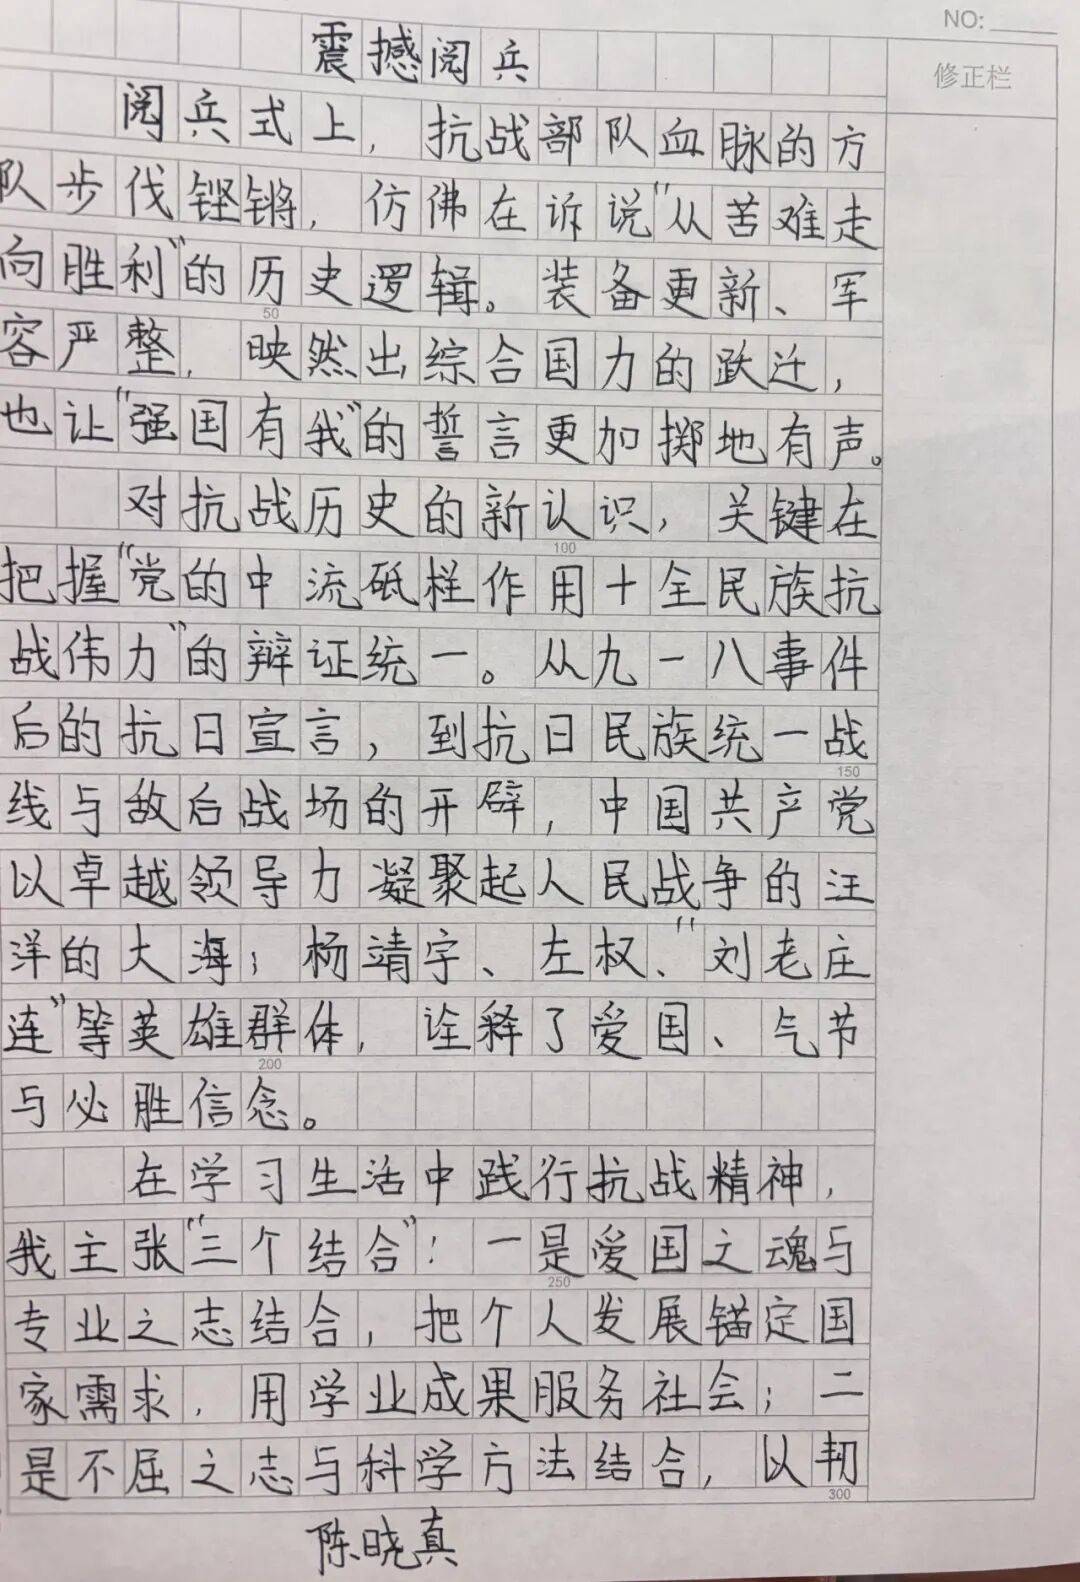 NO:
修正栏
震撼阅兵
阅兵式上，抗战部队血脉的方
队步伐铿锵，仿佛在诉说“从苦难走
向胜利”的历史逻辑。装备更新、军
50
容严整，映然出综合国力的跃迁，
也让“强国有我”的誓言更加掷地有声。
对抗战历史的新认识，关键在
100
把握“党的中流砥柱作用十全民族抗
战伟力”的辩证统一。从九一八事件
后的抗日宣言，到抗日民族统一战
150
线与敌后战场的开辟，中国共产党
以卓越领导力凝聚起人民战争的汪
洋的大海；杨靖宇、左权、“刘老庄
连”等英雄群体，诠释了爱国、气节
200
与必胜信念。
在学习生活中践行抗战精神，
我主张“三个结合”：一是爱国之魂与
250
专业之志结合，把个人发展锚定国
家需求，用学业成果服务社会；二
是不屈之志与科学方法结合，以韧
300
陈晓真